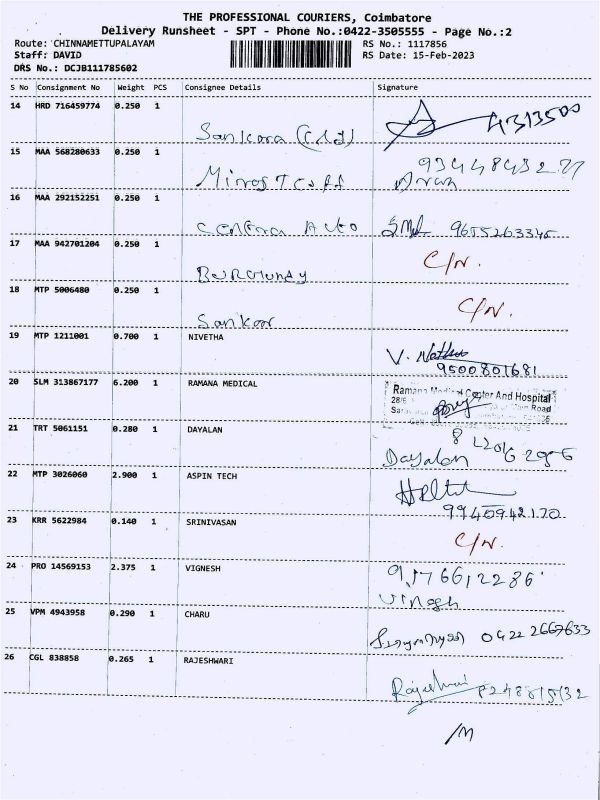 THE PROFESSIONAL COURIERS, Coimbatore
Delivery Runsheet - SPT - Phone No.:0422-3505555 - Page No.:2
Route: CHINNAMETTUPALAYAM RS No.: 1117856
Staff: DAVID RS Date: 15-Feb-2023
DRS No.: DCJB111785602
S No Consignment No Weight PCS Consignee Details Signature
14 HRD 716459774 0.250 1
Sankara 4313500
15 MAA 568280633 0.250 1
16 MAA 292152251 0.250 1
Centra Auto 9655263345
17 MAA 942701204 0.250 1 C/N.
Burgundy
18 MTP 5006480 0.250 1 C/N.
Sankar
19 MTP 1211001 0.700 1 NIVETHA
V. 9500801681
20 SLM 313867177 6.200 1 RAMANA MEDICAL
Ramana Medical Center And Hospital
Road
21 TRT 5061151 0.280 1 DAYALAN
Dayalan
22 MTP 3026060 2.900 1 ASPIN TECH
9940942170
23 KRR 5622984 0.140 1 SRINIVASAN
C/N.
24 PRO 14569153 2.375 1 VIGNESH
25 VPM 4943958 0.290 1 CHARU
0422 2667633
26 CGL 838858 0.265 1 RAJESHWARI